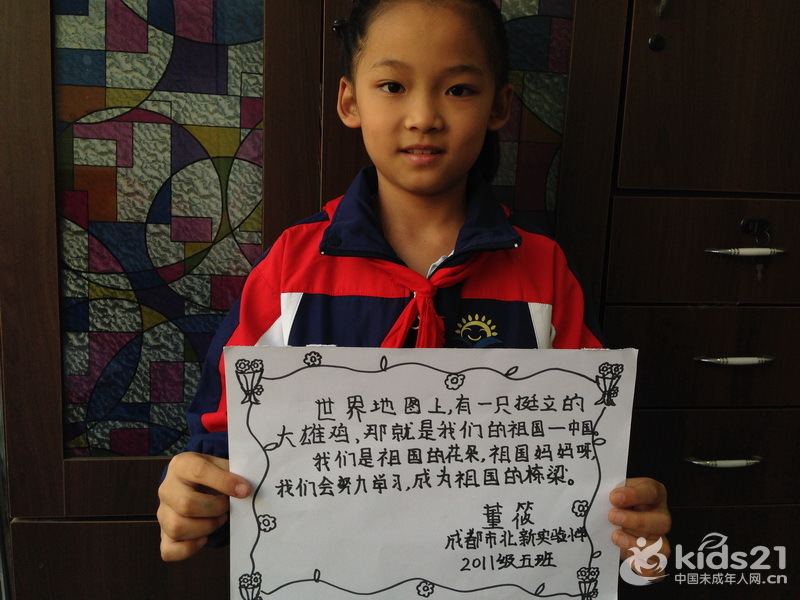 世界地图上,有一只挺立的
大雄鸡,那就是我们的祖国—中国。
我们是祖国的花朵,祖国妈妈呀,
我们会努力学习,成为祖国的栋梁。
董筱
成都市北新实验小学
2011级五班
kids21
中国未成年人网.cn